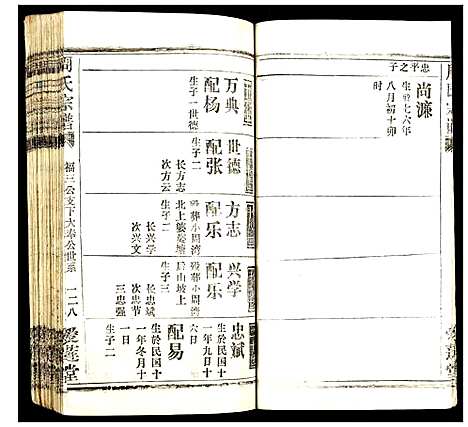 忠平之子
尚濂
生於七六年
八月初十卯
时
周氏宗谱
福三公支下大奉公世系
一二八
爱莲堂
万典
配杨
生子一世德
世德
配张
生子二
长方志
次方云
方志
配乐
殁葬小周湾
北上婆婆塘
生子二
长兴学
次兴文
兴学
配乐
殁葬小周湾
后山坡上
生子三
长忠斌
次忠节
三忠强
忠斌
生於民国十
一年九日十
六日
配易
生於民国十
一年冬月十
一日
生子二